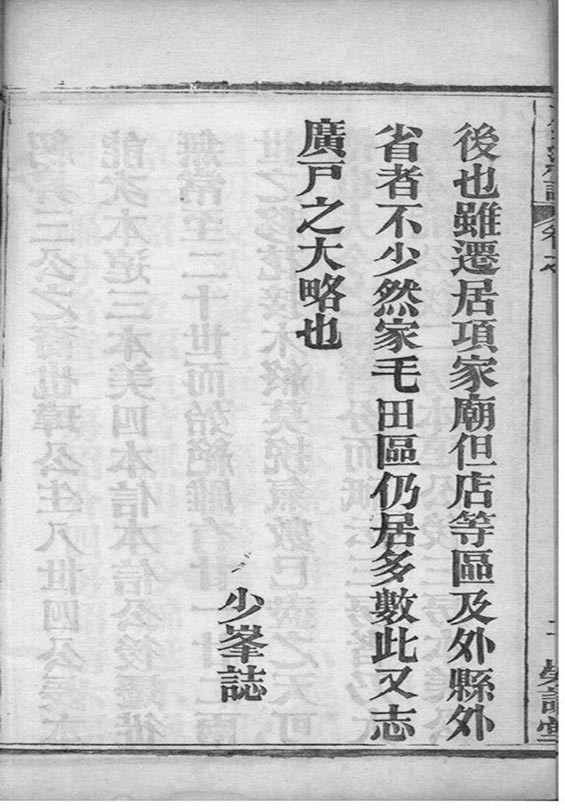 後也雖遷居項家廟但店等區及外縣外
省者不少然家毛田區仍居多數此又志
廣戸之大略也
少峯誌